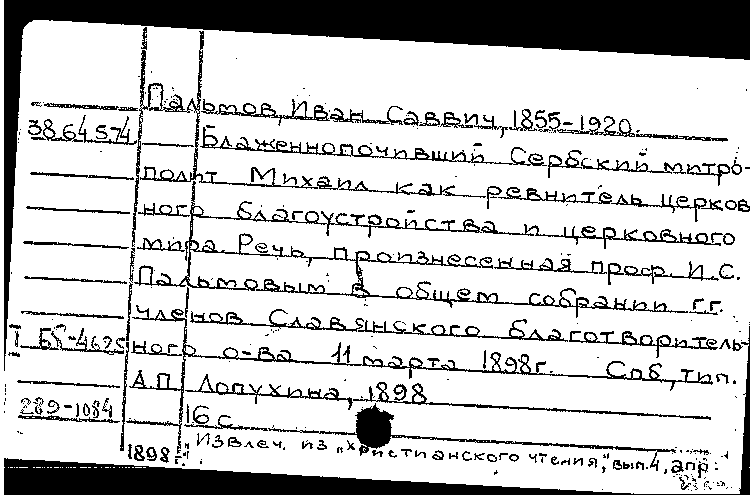 Пальмов, Иван Саввич, 1855-1920.
3864574 Блаженнопочивший Сербский митро-
полит Михаил как ревнитель церков
ного благоустройства и церковного
мира. Речь, произнесенная проф. И.С.
Пальмовым в общем собрании г.г.
членов Славянского благотворитель-
I Б5-4625 ного о-ва 11 марта 1898г. Спб, тип.
А.П. Лопухина, 1898
289-1084 16 с.
1898г. Извлеч. из „Христианского чтения", вып. 4, апр: